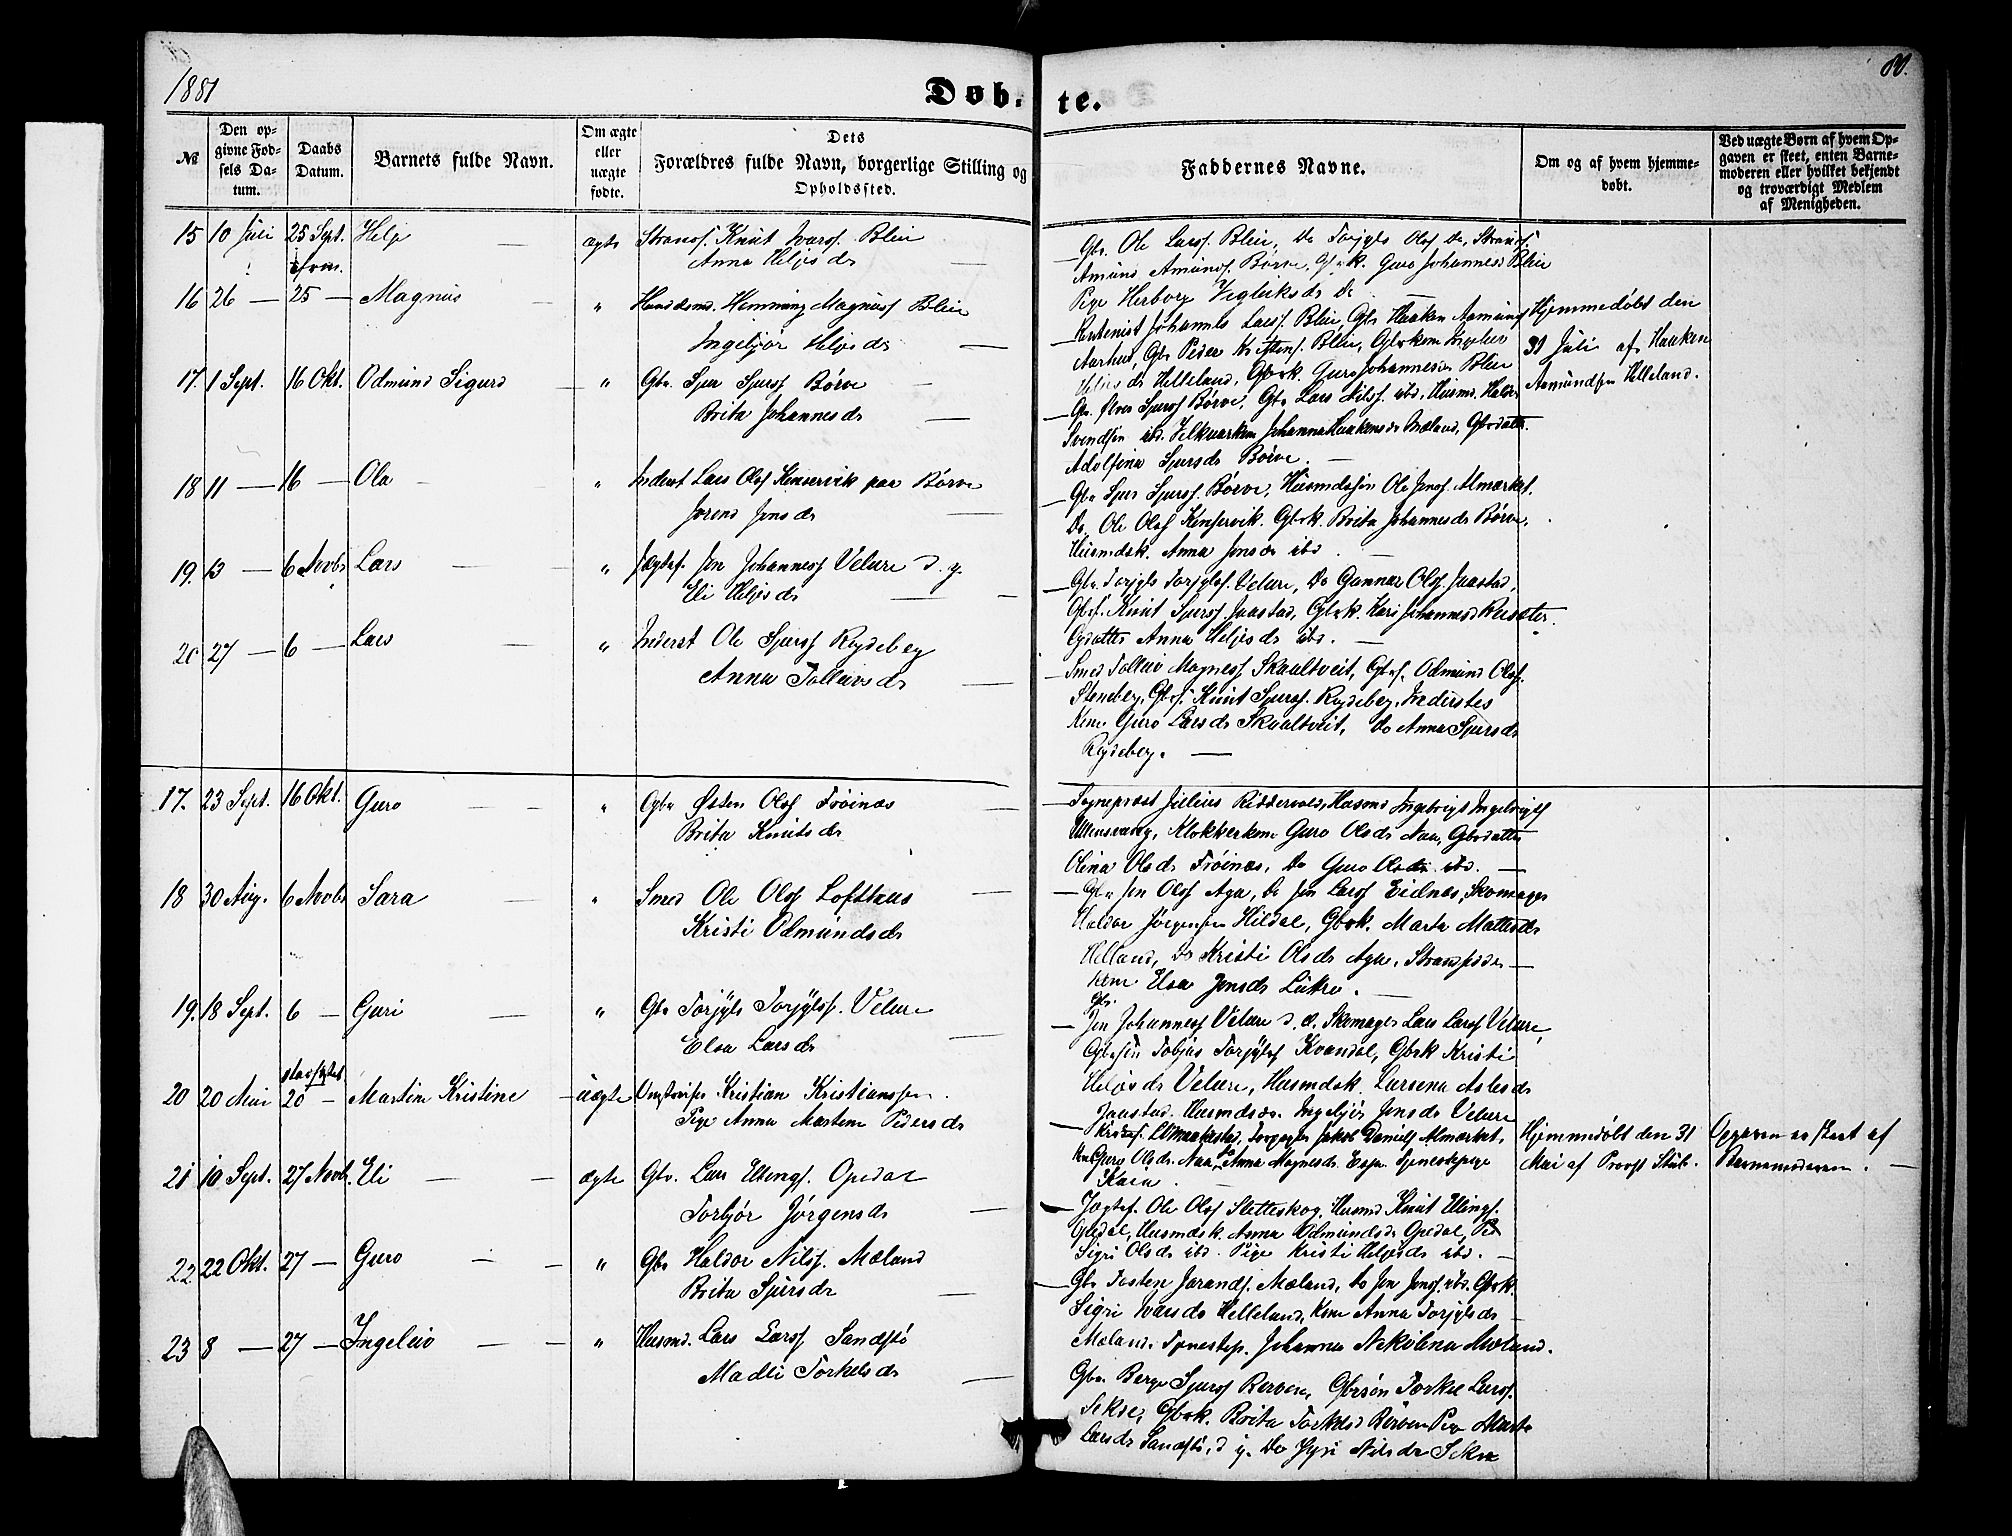 1881
Døb-
te.
80.
№
Den op-
givne Fød-
sels Da-
tum.
Daabs
Datum.
Barnets fulde Navn.
Om ægte
eller
uægte
fødte.
Dets
Forældres fulde Navn, borgerlige Stilling og
Opholdssted.
Faddernes Navne.
Om og af hvem hjemme-
døbt.
Ved uægte Børn af hvem Op-
gaven er skeet, enten Barne-
moderen eller hvilket bekjendt
og troværdigt Medlem
af Menigheden.
15 10 Juli 25 Sept. Helje — ægte Strands. Knut Ivars. Bleie
Anna Heljesdr —
Gbr. Ole Larss. Bleie, Do Torjyls Olss. Do, Strands.
Amund Amunds. Børve, Gbrk. Guro Johannesd. Bleie
Pige Herborg Vigleiksdr Do —
16 26 — 25 — Magnus — " Hemming Magnuss Bleie
Ingebjør Heljesdr —
Johannes Larss. Bleie, Gbr Haaken Aamunds
Aarhus, Gbr Peder Bleie,
Helland, Gbrk. Guro Johannesdr Bleie
Hjemmedøbt den
31 Juli af Haaken
Aamundsen Helleland.
17. 1 Sept. 16 Okt. Odmund Sigurd — " Gbr. Sjur Sjurss Børve —
Brita Johannesdr —
Gbr. Sjurss Børve, Gbr Lars Nilss. ibd, Husmd. Haldor
Svendsen ibd. Johanna Haakensdr Mæland, Gbrdatter
Adolfina Sjursdr Børve. —
18 11 — 16 — Ola — " Inderst Lars Olss Kinservik paa Børve
Jorend Jonsdr —
Gbr Sjur Sjurss. Børve, Husmdssøn Ole Jons. Almærket.
Do. Ole Olss Kinservik. Gbrk. Brita Johannesdr Børve.
Husmdsk. Anna Jonsdr ibd. —
19. 13 — 6 Novbr Lars — " Jægtsf. Jon Johanness Velure d. y.
Eli Heljesdr —
Gbr. Torjyls Torjylss. Velure, Do Gunnar Olss. Jaastad,
Gbrs. Knut Sjurss Jaastad, Gbrk Kari Johannesd
Anna Heljesdr ibd. —
20 27 — 6 — Lars — " Inderst Ole Sjurss Rydeberg
Anna Tolleivsdr —
Smed Tolleiv Magness. Skaaltveit, Gbrs. Odmund Olss.
Steneberg, Gbrs. Knut Sjurss. Rydeberg, Inderstes
Kone Guro Larsdr Skaaltveit, Do Anna Sjursdr
Rydeberg. —
17. 23 Sept. 16 Okt. Guro — " Gbr Østen Olss Frøinæs —
Brita Knutsdr
Sogneprest Julius Riddervold, Husmd Ingebrigt Ingebrigts
Ullensvang, Klokkerkone Guro Olsdr Naa, Gbrdatter
Olina Olsdr Frøinæs, Do Guro Olsdr ibd. —
18 30 Aug. 6 Novbr Sara — " Smed Ole Olss Lofthus —
Kristi Odmundsdr
Gbr Jon Olss Aga, Do Jon Larss Eidnæs, Skomager
Haldor Jørgensen Hildal, Gbrk. Marta Mattesdr
Helland, Do Kristi Olsdr Aga, Strandsidder-
kone Elsa Jonsdr Lutro. —
19. 18 Sept. 6 — Guri — " Gbr Torjyls Torjylss. Velure —
Elsa Larsdr —
Gbr.
Jon Johanness Velure d. æ. Skomager Lars Larss Velure,
Gbrsøn Tobias Torjylss Kvandal, Gbrk Kristi
Heljesdr Velure, Husmdsk. Larsena Aslesdr
Jaastad. Ingebjør Jonsdr Velure
20 20 Mai 20 — Martine Kristine — uægte Kristian Kristianssen.
Pige Anna Martine Pedersdr
Jakob Daniels Almærket,
Guro Olsdr. Naa, Anna Magnesdr. Espe. Tjenestepige
Kaia.
Hjemmedøbt den 31
Mai af Provst Stub.
Opgaven er skeet af
Barnemoderen. —
21 10 Sept. 27 Novbr. Eli — ægte Gbr. Lars Elings. Opedal
Torbjør Jørgensdr —
Jægtsf. Ole Olss Sletteskog, Husmd Knut Elings.
Opedal, Husmdsk. Anna Odmundsdr Opedal,
Sigri Olsdr ibd. Pige Kristi Heljesdr ibd. —
22 22 Okt. 27 — Guro — " Gbr Haldor Nilss. Mæland
Brita Sjursdr —
Gbr Josten Jarands. Mæland, Do Jon Jonss. ibd. Gbrk.
Sigri Ivarsdr Helleland, Kone Anna Torjylsdr
Mæland. Tjenestep. Johanna Nikolina Mæland.
23 8 — 27 — Ingeleiv — " Husmd. Lars Larss Sandstø
Madli Torkelsdr —
Gbr. Berge Sjurss Reiven, Gbrsøn Torkel Larss.
Sekse, Gbrk. Brita Torkelsd Pige Marta
Larsdr Sandstø, d y. Do Nilsdr Sekse